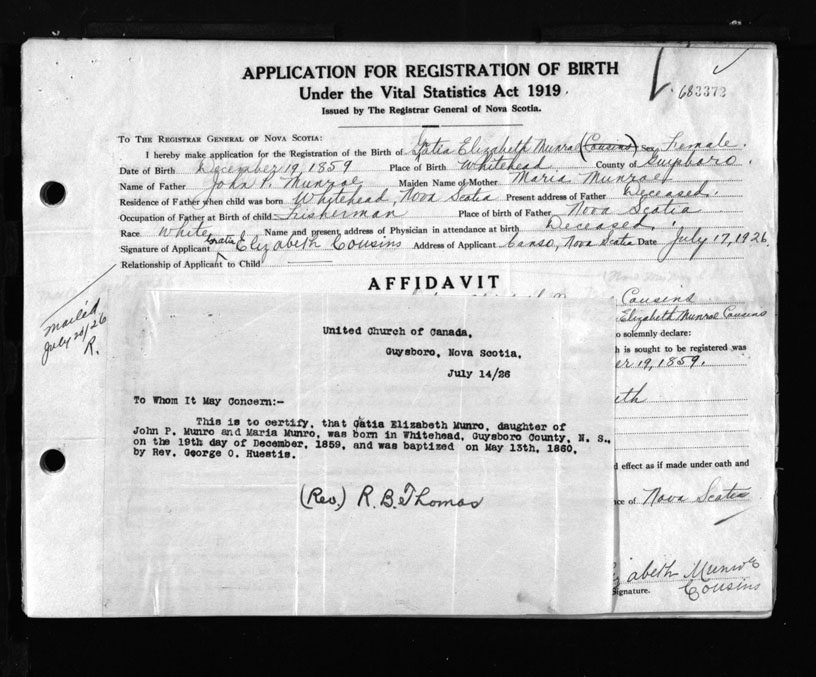 APPLICATION FOR REGISTRATION OF BIRTH
Under the Vital Statistics Act 1919.
Issued by The Registrar General of Nova Scotia.
683372
TO THE REGISTRAR GENERAL OF NOVA SCOTIA:
I hereby make application for the Registration of the Birth of Catia Elizabeth Munroe (Cousins) Sex Female.
Date of Birth December 19, 1859 Place of Birth Whitehead County of Guysboro.
Name of Father John P. Munroe Maiden Name of Mother Maria Munroe
Residence of Father when child was born Whitehead, Nova Scotia Present address of Father Deceased.
Occupation of Father at Birth of child Fisherman Place of birth of Father Nova Scotia
Race White Name and present address of Physician in attendance at birth Deceased.
Signature of Applicant Catia Elizabeth Cousins Address of Applicant Canso, Nova Scotia Date July 17, 1926.
Relationship of Applicant to Child
AFFIDAVIT
Mailed
July 20/26
R.
Cousins
Elizabeth Munroe Cousins
o solemnly declare:
h is sought to be registered was
er 19, 1859.
eth
d effect as if made under oath and
ce of Nova Scotia
Elizabeth Munroe
Cousins
ignature.
United Church of Canada,
Guysboro, Nova Scotia,
July 14/26
To Whom It May Concern:-
This is to certify, that Catia Elizabeth Munro, daughter of
John P. Munro and Maria Munro, was born in Whitehead, Guysboro County, N. S.,
on the 19th day of December, 1859, and was baptized on May 13th, 1860,
by Rev. George O. Huestis.
(Rev.) R. B. Thomas